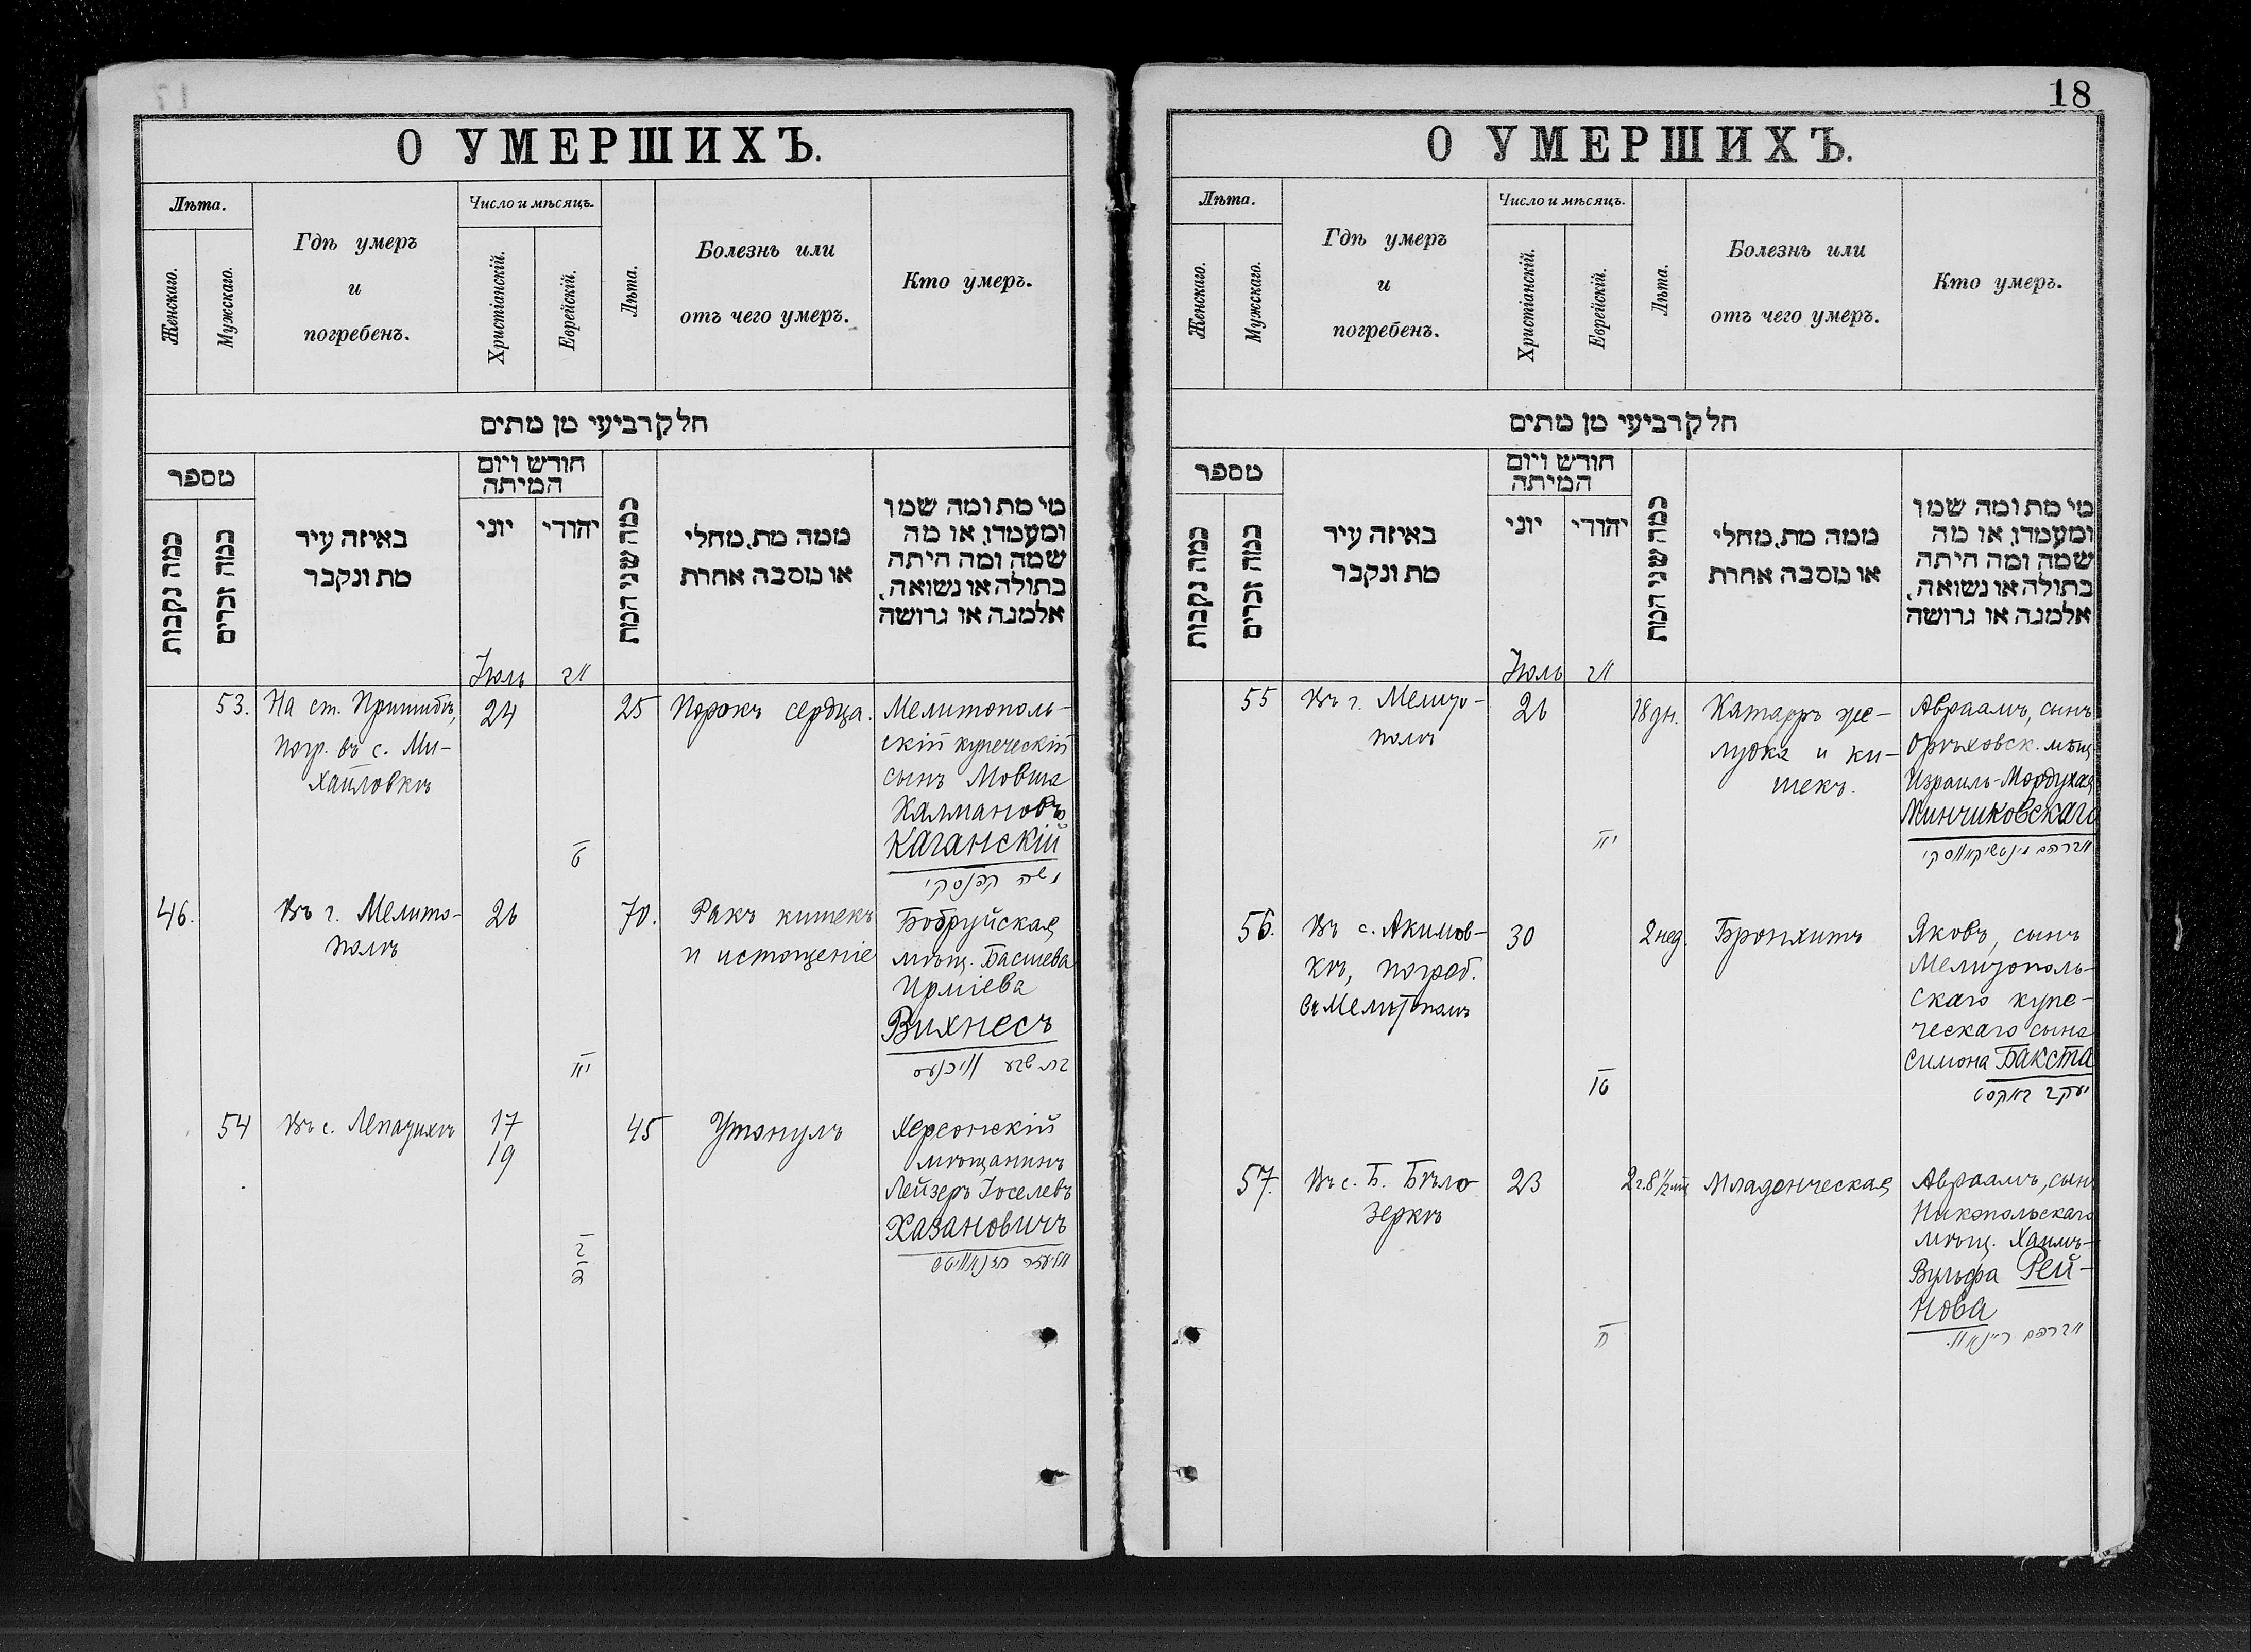 О УМЕРШИХЪ.
Лѣта.
Женскаго.
Мужскаго.
Гдѣ умеръ
и
погребенъ.
Число и мѣсяцъ.
Христіанскій.
Еврейскій.
Лѣта.
Болезнь или
отъ чего умеръ.
Кто умеръ.
חלק רביעי מן מתים
מספר
כמה נקבות
כמה זכרים
באיזה עיר
מת ונקבר
חודש ויום
המיתה
יוני
יהודי
כמה שני המת
ממה מת, מחלי
או מסבה אחרת
מי מת ומה שמו
ומעמדו, או מה
שמה ומה היתה
בתולה או נשואה,
אלמנה או גרושה
Іюль
53.
На ст. Пришибъ,
погр. въ с. Ми-
хайловкѣ
24
25
Порокъ сердца.
Мелитополь-
скій купеческій
сынъ Мовша
Калмановъ
Каганскій
46.
Въ г. Мелито-
полѣ
26
70.
Ракъ кишекъ
и истощеніе
Бобруйская
мѣщ. Басшева
Ирміева
Вихнесъ
54
Въ с. Лепатихѣ
17
19
45
Утонулъ
Херсонскій
мѣщанинъ
Лейзеръ Іоселевъ
Хазановичъ
18
О УМЕРШИХЪ.
Лѣта.
Женскаго.
Мужскаго.
Гдѣ умеръ
и
погребенъ.
Число и мѣсяцъ.
Христіанскій.
Еврейскій.
Лѣта.
Болезнь или
отъ чего умеръ.
Кто умеръ.
חלק רביעי מן מתים
מספר
כמה נקבות
כמה זכרים
באיזה עיר
מת ונקבר
חודש ויום
המיתה
יוני
יהודי
כמה שני המת
ממה מת, מחלי
או מסבה אחרת
מי מת ומה שמו
ומעמדו, או מה
שמה ומה היתה
בתולה או נשואה,
אלמנה או גרושה
Іюль
55
Въ г. Мелито-
полѣ
26
18 дн.
Катарръ же-
лудка и ки-
шекъ.
Авраамъ, сынъ
Орѣховск. мѣщ
Израиль-Мордухая
Минчиковскаго
56.
Въ с. Акимов-
кѣ, погреб.
въ Мелитополѣ
30
2 нед.
Бронхитъ
Яковъ, сынъ
Мелитополь-
скаго купе-
ческаго сына
Симона Бакста
יעקב באקסט
57.
Въ с. Б. Бѣло
зеркѣ
23
2 г. 8 1/2 мѣ
Младенческая
Авраамъ, сын
Никопольскаго
мѣщ. Хаимъ-
Вульфа Рей-
нова